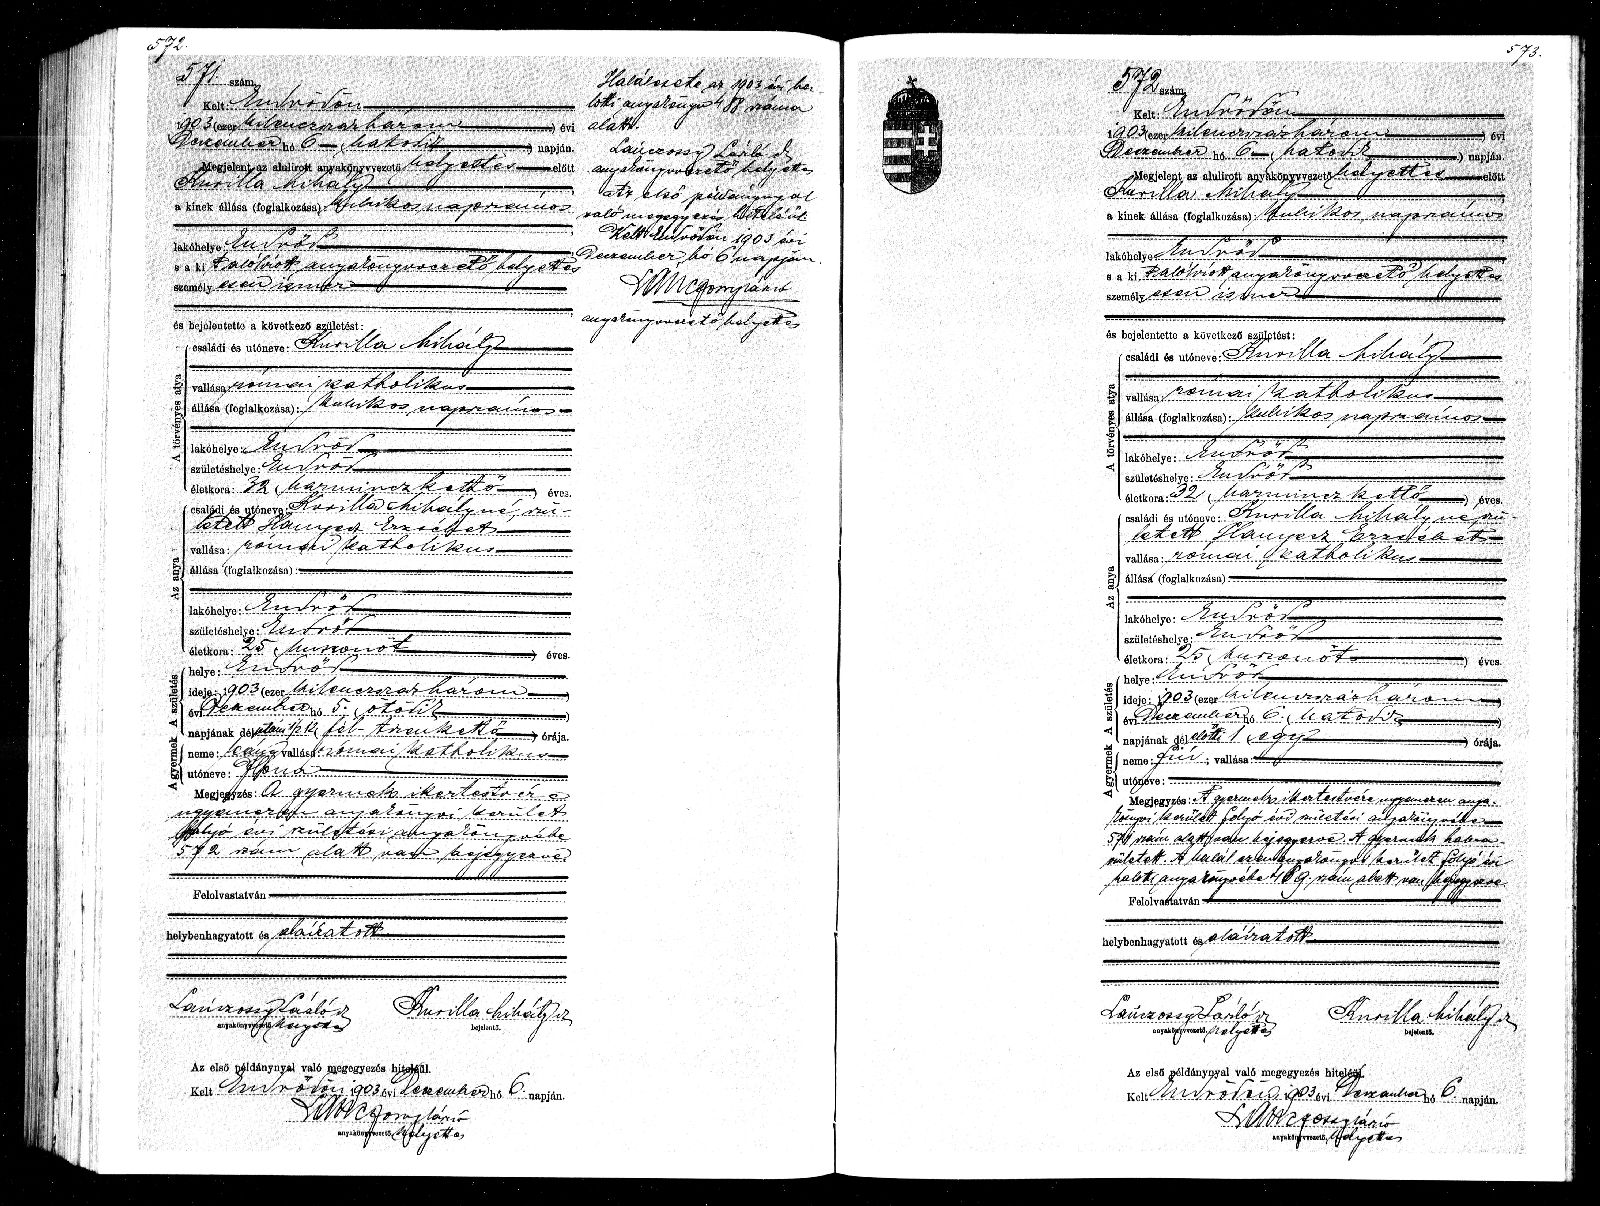 572.
571. szám.
Kelt: Endrődön
1903 (ezer kilenczszázhárom) évi
Deczember hó 6 (hatodik) napján.
Megjelent az alulirott anyakönyvvezető helyettes előtt
Kurilla Mihály
a kinek állása (foglalkozása): kubikos napszámos
lakóhelye: Endrőd
s a ki t alólírott anyakönyvvezető helyettes
személy esen ismer
és bejelentette a következő születést:
A törvényes atya
családi és utóneve: Kurilla Mihály
vallása: római katholikus
állása (foglalkozása): kubikos napszámos
lakóhelye: Endrőd
születéshelye: Endrőd
életkora: 32 (harminczkettő) éves.
Az anya
családi és utóneve: Kurilla Mihályné, szü-
letett Hanyecz Erzsébet
vallása: római katholikus
állása (foglalkozása):
lakóhelye: Endrőd
születéshelye: Endrőd
életkora: 25 (huszonöt) éves.
A gyermek A születés
helye: Endrőd
ideje: 1903 (ezer kilenczszázhárom)
évi Deczember hó 5. (ötödik)
napjának dél után ½12 (fél tizenkettő) órája.
neme: leány vallása: római katholikus
utóneve: Ilona
Megjegyzés: A gyermek ikertestvére
ugyanezen anyakönyvi kerület
folyó évi születési anyakönyvébe
572 szám alatt van bejegyezve
Felolvastatván
helybenhagyatott és aláíratott
Lánczossy László
anyakönyvvezető, helyettes
Kurilla Mihály
bejelentő.
Az első példánynyal való megegyezés hiteléül.
Kelt Endrődön 1903 évi Deczember hó 6. napján.
anyakönyvvezető, helyettes
Halálesete az 1903 évi ha-
lotti anyakönyv 488 száma
alatt.
Lánczossy László
anyakönyvvezető helyettes
Az első példánynyal
való megegyezés hiteléül
Kelt Endrődön 1903 évi
Deczember hó 6 napján.
anyakönyvvezető helyettes
573.
572 szám.
Kelt: Endrődön
1903 (ezer kilenczszázhárom) évi
Deczember hó 6 (hatodik) napján.
Megjelent az alulirott anyakönyvvezető helyettes előtt
Kurilla Mihály
a kinek állása (foglalkozása): kubikos napszámos
lakóhelye: Endrőd
s a ki t alólírott anyakönyvvezető helyettes
személy esen ismer
és bejelentette a következő születést:
A törvényes atya
családi és utóneve: Kurilla Mihály
vallása: római katholikus
állása (foglalkozása): kubikos napszámos
lakóhelye: Endrőd
születéshelye: Endrőd
életkora: 32 (harminczkettő) éves.
Az anya
családi és utóneve: Kurilla Mihályné szü-
letett Hanyecz Erzsébet
vallása: római katholikus
állása (foglalkozása)
lakóhelye: Endrőd
születéshelye: Endrőd
életkora: 25 (huszonöt) éves.
A gyermek A születés
helye: Endrőd
ideje: 1903 (ezer kilenczszázhárom)
évi Deczember hó 6. (hatodik)
napjának dél előtti 1 (egy) órája.
neme: fiú; vallása:
utóneve:
Megjegyzés: A gyermek ikertestvére ugyanezen anya-
könyvi kerület folyó évi születési anyakönyvébe
571 szám alatt van bejegyezve. A gyermek halva
született. A halál ezen anyakönyvi kerület folyó évi
halotti anyakönyvébe 489. szám alatt van bejegyezve
Felolvastatván
helybenhagyatott és aláíratott
Lánczossy László
anyakönyvvezető, helyettes
Kurilla Mihály
bejelentő.
Az első példánynyal való megegyezés hiteléül.
Kelt Endrődön 1903 évi Deczember hó 6. napján.
anyakönyvvezető, helyettes